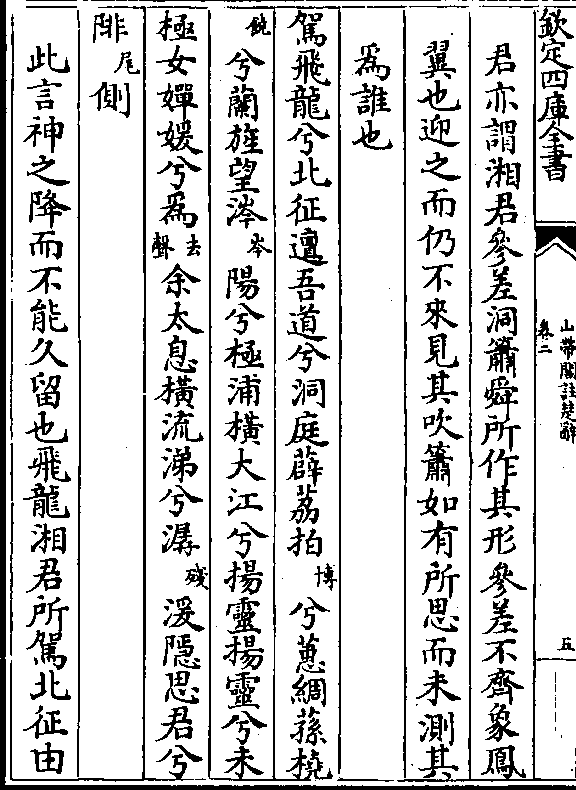 欽定四庫全書
山帶閣註楚辭
卷二
五
君亦謂湘君參差洞簫舜所作其形參差不齊象鳳
翼也迎之而仍不來見其吹簫如有所思而未測其
爲誰也
駕飛龍兮北征邅吾道兮洞庭薜荔拍博兮蕙綢蓀橈
饒兮蘭旌望涔岑陽兮極浦橫大江兮揚靈揚靈兮未
極女嬋媛兮爲去聲余太息橫流涕兮潺殘湲隱思君兮
陫尾側
此言神之降而不能久留也飛龍湘君所駕北征由